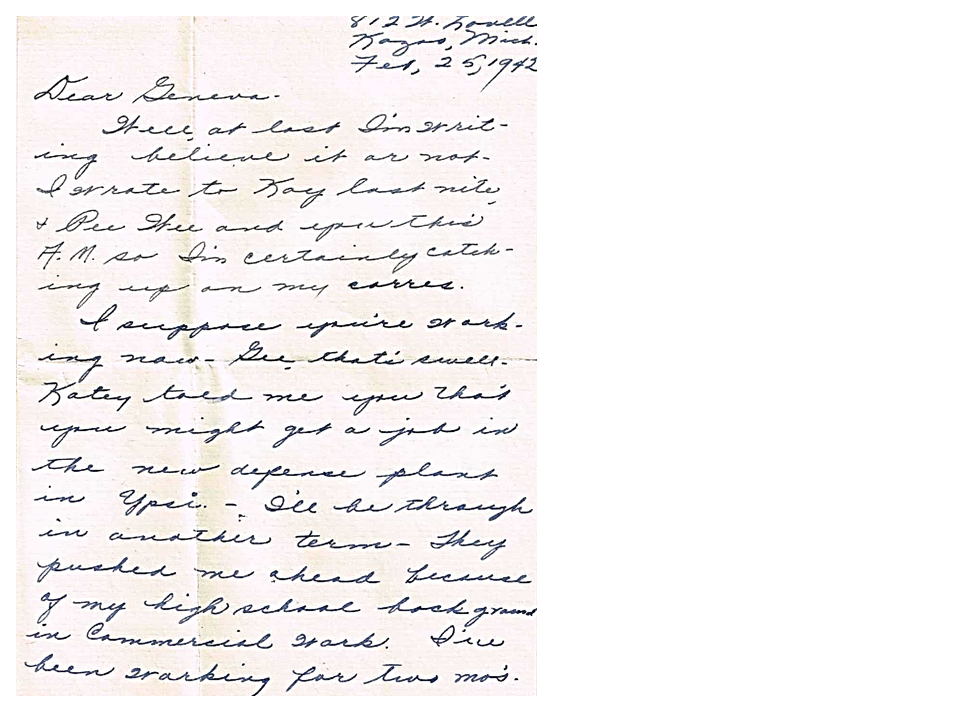 812 W. Lovell
Kazoo, Mich.
Feb, 25, 1942
Dear Geneva-
Well, at last I'm writ-
ing believe it or not-
I wrote to Kay last nite,
& Pee Wee and you this
A.M. so I'm certainly catch-
ing up on my corres.
I suppose you're work-
ing now- Gee, that's swell-
Katey told me you that
you might get a job in
the new defense plant
in Ypsi. - I'll be through
in another term- They
pushed me ahead because
of my high school background
in Commercial work. I've
been working for two mo's.